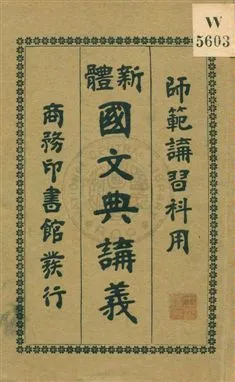 W
5603
師範講習科用
新體
國文典講義
商務印書館發行